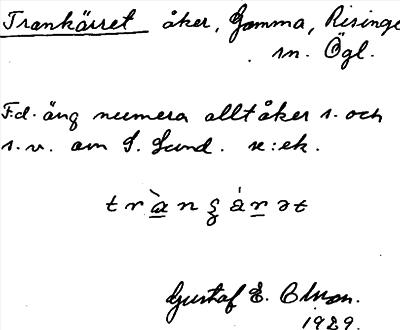 Trankärret åker, Gamma, Risinge
sn. Ögl.
F.d. äng numera allt åker s. och
s.v. om S. Lund. se: ek.
Gustaf E.
1929.